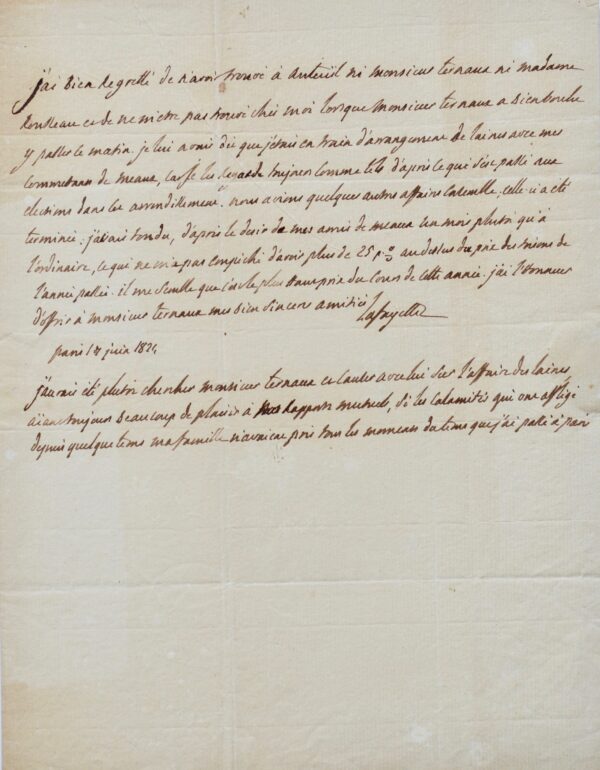 j'ai bien regretté de n'avoir trouvé à auteuil ni monsieur ternaux ni madame
rousseau et de ne m'etre pas trouvé chés moi lorsque monsieur ternaux a bien voulu
y passer le matin. je lui avois dit que j'etais en train d'arrangement de laines avec mes
commettans de meaux, car je les regarde toujours comme tels d'après ce qui s'est passé aux
elections dans cet arrondissement. nous avions quelques autres affaires ensemble; celle ci a été
terminée; j'avais tondu, d'après le desir de mes amis de meaux un mois plutôt qu'à
l'ordinaire, ce qui ne m'a pas empêché d'avoir plus de 25 p% au dessus du prix des miens de
l'année passée. il me semble que c'est le plus haut prix du cours de cette année. j'ai l'honneur
d'offrir à monsieur ternaux mes bien sinceres amitiés
Lafayette
paris juin 1824
j'aurais été plutôt chercher monsieur ternaux et causer avec lui sur l'affaire des laines
aiant toujours beaucoup de plaisir à nos rapports mutuels, si les calamités qui ont affligé
depuis quelque tems ma famille n'avaient pris tous les momens du tems que j'ai passé à paris